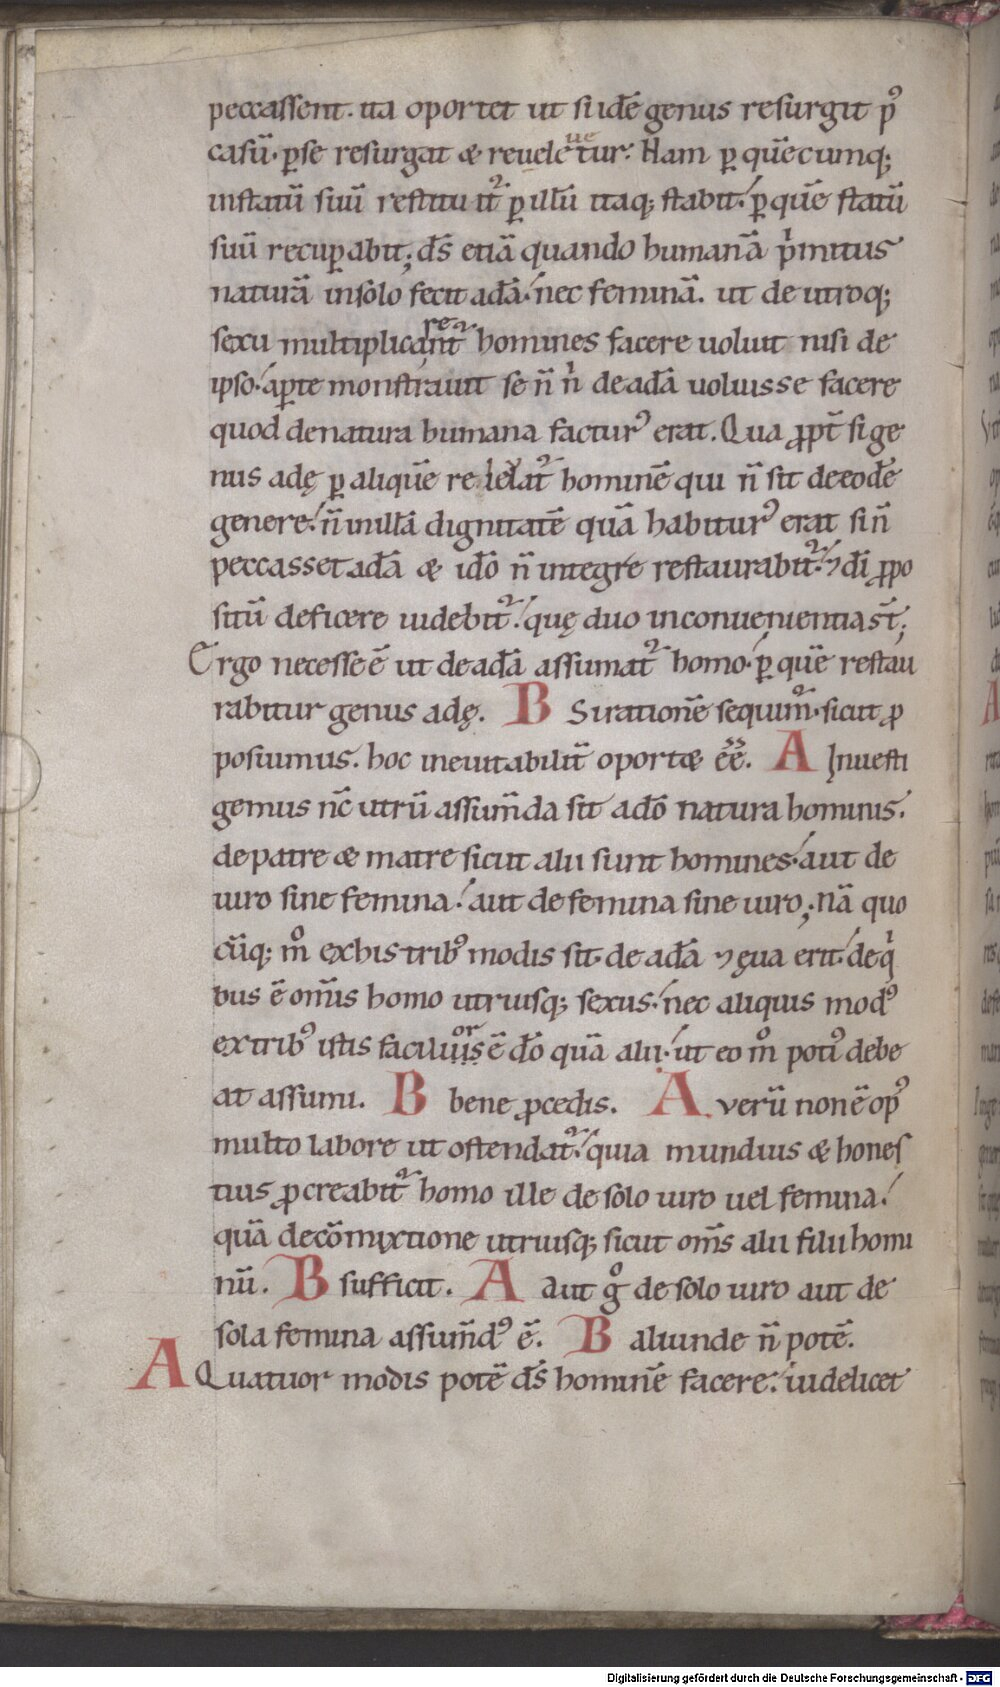 peccassent. ita oportet ut si idē genus resurgit p᷒
casū. ꝑ se resurgat & reuele᷑tur. Nam ꝑ quēcumq;
instatū suū restitu it᷑ ꝑ illū itaq; stabit. ꝑ quē statū
suū recuꝑabit; dſ̄ etiā quando humanā p̍mitus
naturā insolo fecit adā. nec feminā. ut de utroq;
sexu multiplicarent᷑ homines facere uoluit nisi de
ipso. aꝑte monstrauit se n̄ n̍ de adā uoluisse facere
quod denatura humana factur᷒ erat. Qua ꝓpt̄ si ge
nus adę ꝑ aliquē releuat᷑ hominē qui n̄ sit de eodē
genere. n̄ inillā dignitatē quā habitur᷒ erat si n̄
peccasset adā & idō n̄ integre restaurabit᷑. ⁊ dī ꝓpo
sitū deficere uidebit᷑. quę duo inconuenientia st̄;
Ergo necesse ē ut de adā assumat᷑ homo. ꝑ quē restau
rabitur genus adę. B Si rationē sequim᷑. sicut ꝓ
posuimus. hoc ineuitabilit̄ oportæ ēē. A Inuesti
gemus nc̄ utrū assum̄da sit a dō natura hominis.
de patre & matre sicut alii sunt homines. aut de
uiro sine femina. aut de femina sine uiro; nā quo
cūq; mͦ ex his trib᷒ modis sit. de adā ⁊ ęua erit. de q̍
bus ē om̄is homo utriusq; sexus. nec aliquis mod᷒
ex trib᷒ istis facilior ē dō quā alii. ut eo mͦ poti᷒ debe
at assumi. B bene ꝓcedis. A verū non ē op᷒
multo labore ut ostendat᷑. quia mundius & hones
tius ꝓcreabit᷑ homo ille de solo uiro uel femina.
quā de cōmixtione utriusq; sicut om̄s alii filii homi
nū. B sufficit. A Aut gͦ de solo uiro aut de
sola femina assum̄d᷒ ē. B aliunde n̄ potē.
A Quatuor modis potē dſ̄ hominē facere. uidelicet
Digitalisierung gefördert durch die Deutsche Forschungsgemeinschaft - DFG